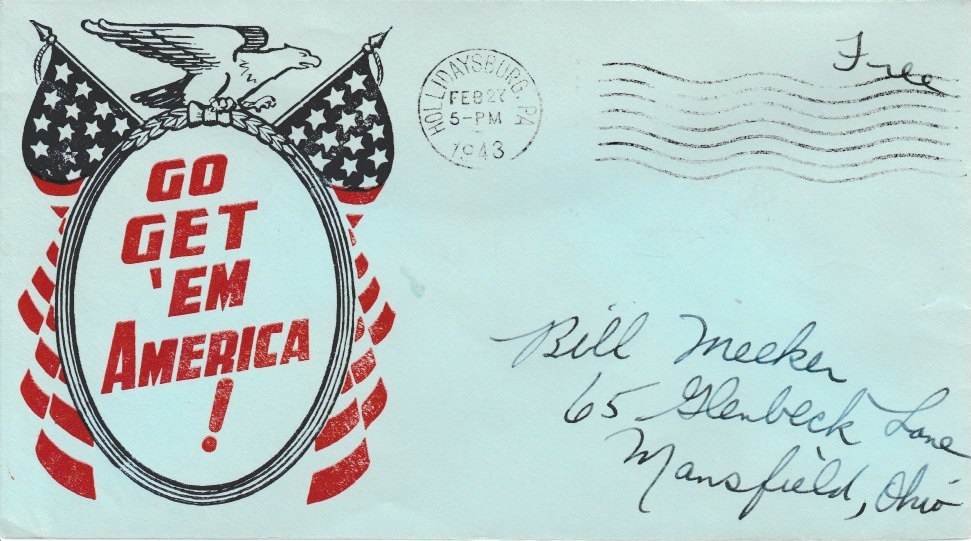 GO
GET
'EM
AMERICA
!
HOLLIDAYSBURG, PA
FEB 27
5-PM
1943
Free
Bill Meeker
65 Glenbeck Lane
Mansfield, Ohio